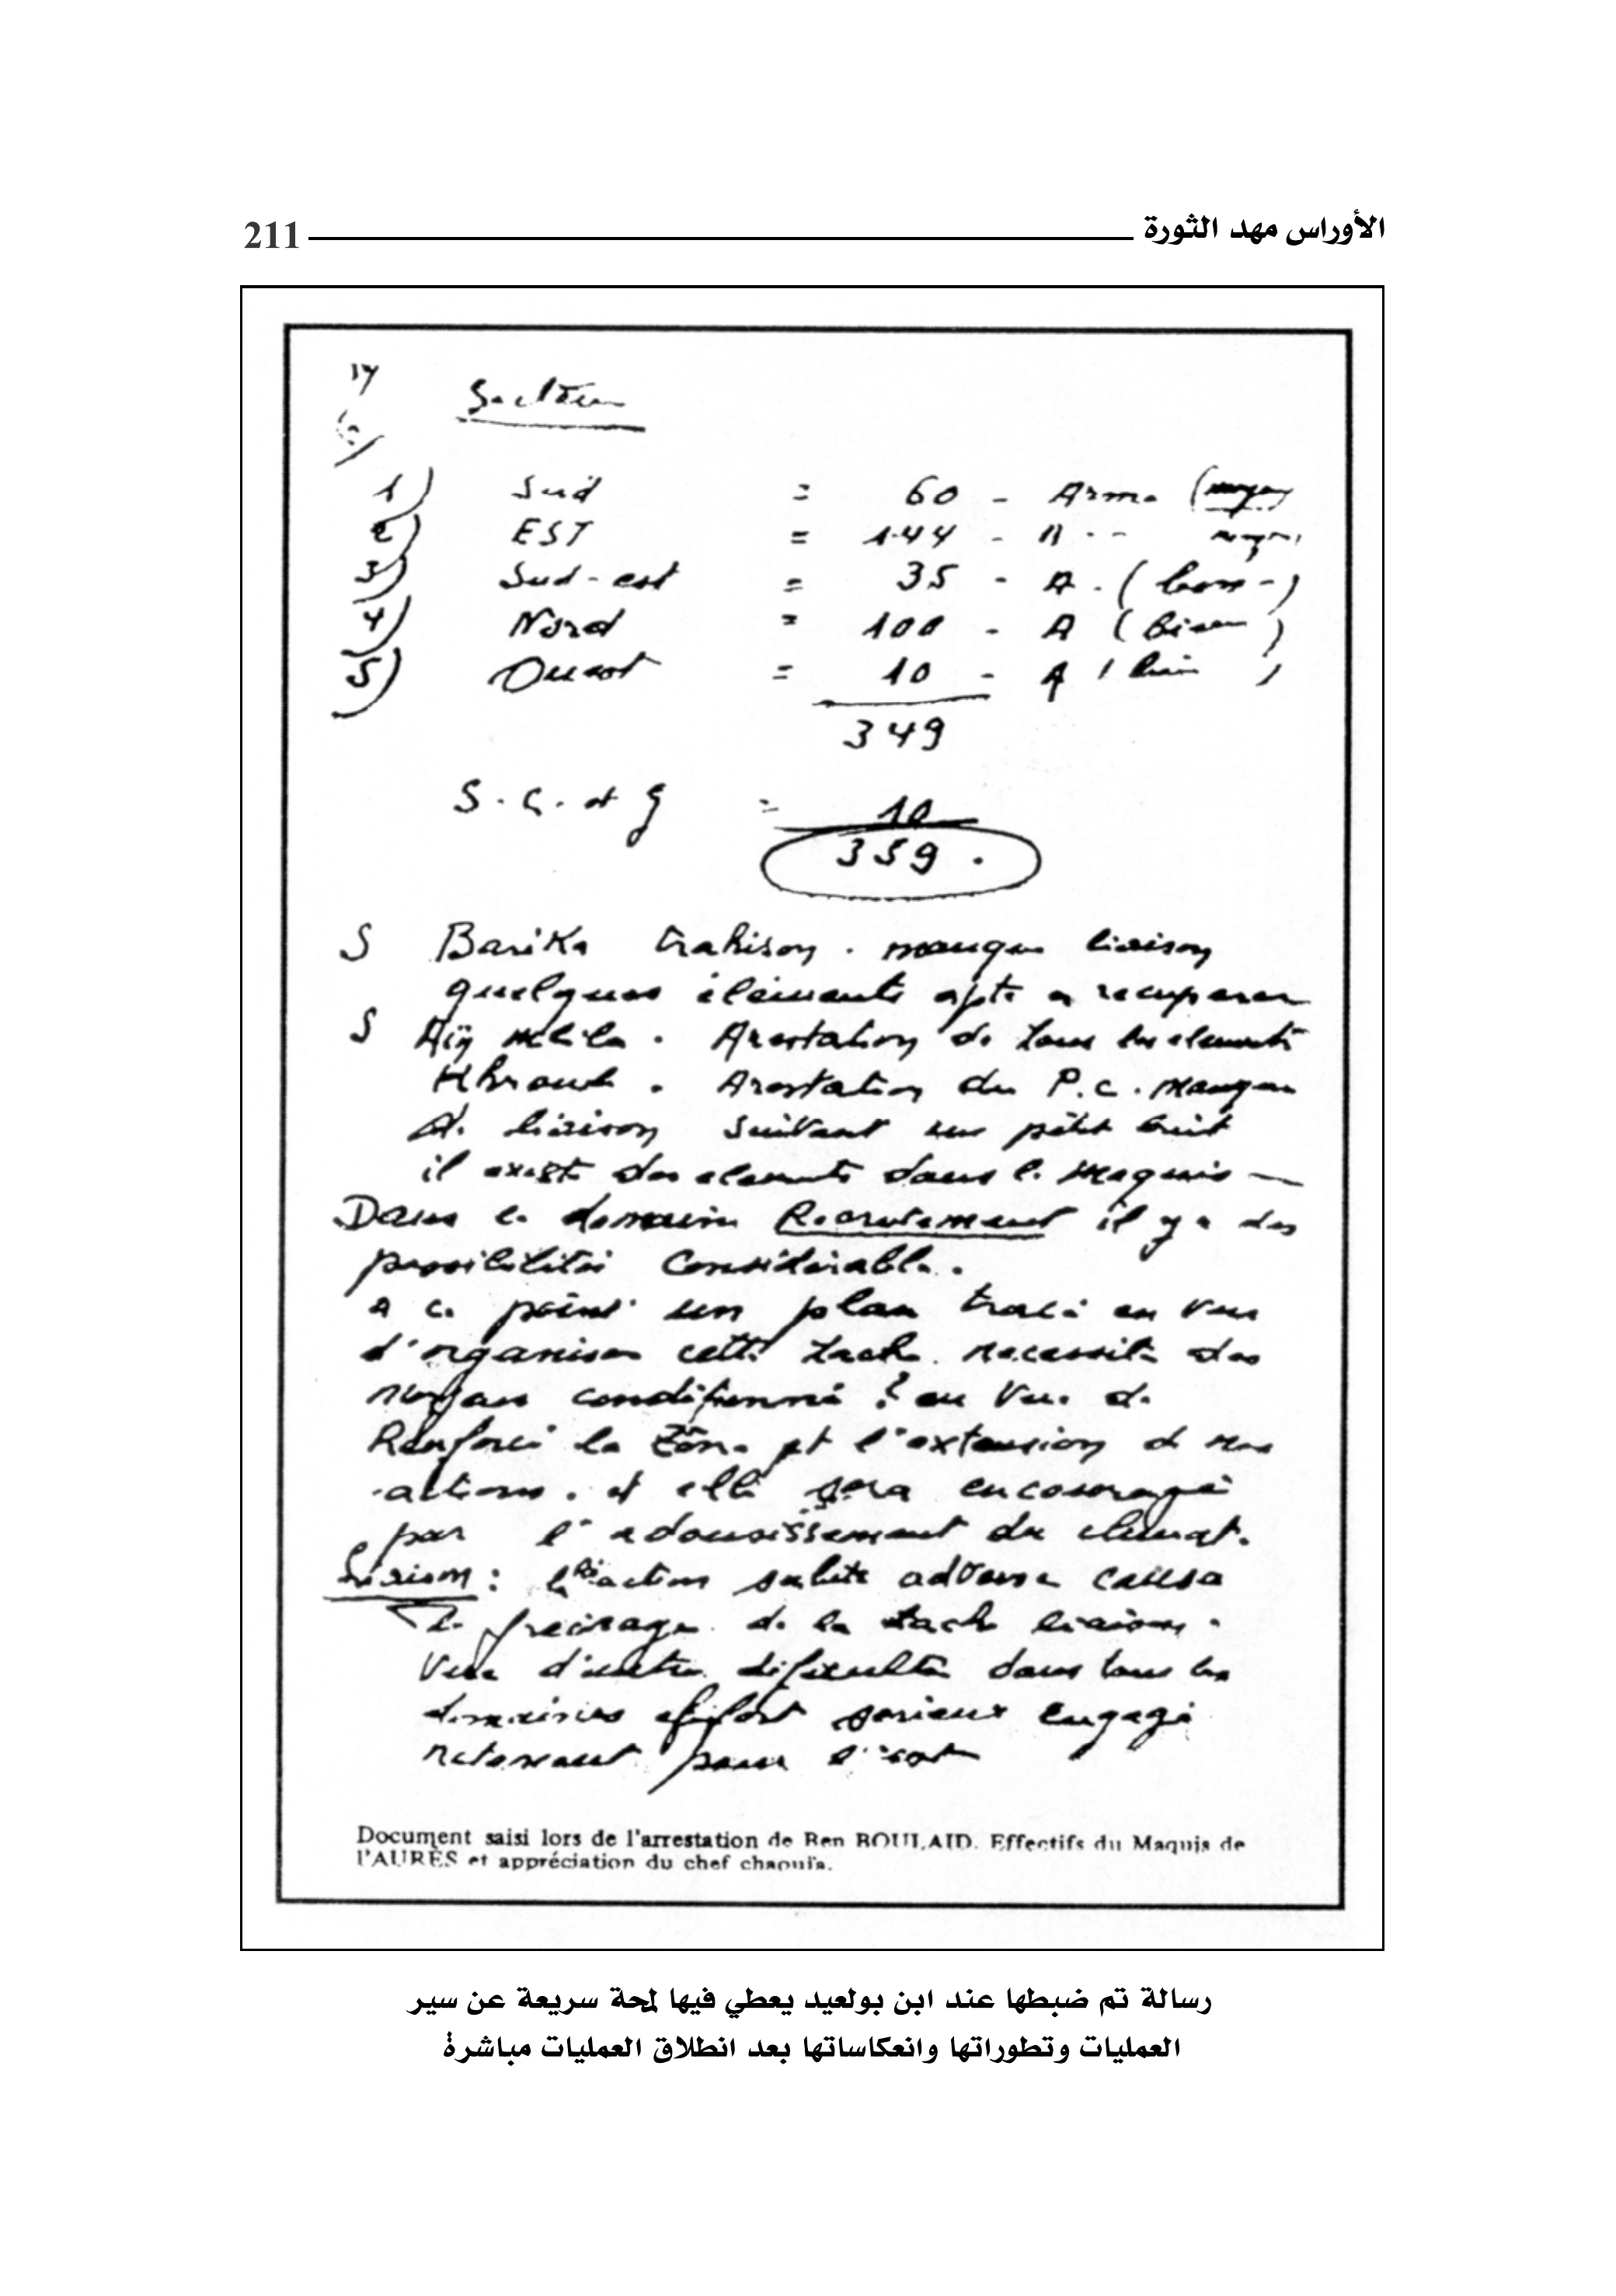 الأوراس مهد الثورة 211
Secteur
1) Sud = 60 - Arme (moyen
2) EST = 144 - moyen
3) Sud-est = 35 - A. (bon-)
4) Nord = 100 - A (bien)
5) Ouest = 10 - A (bien)
349
S. C. et g = 10
359.
S Barika trahison. manque liaison
quelques élements apte a recuperer
S Aïn Mlila. Arestation de tous les elements
Khroub. Arestation du P.C. manque
de liaison suivant un petit bruit
il existe des elements dans le maquis
Dans le domaine Recrutement il y a des
possibilités Considérable.
a ce point un plan tracé en vue
d'organiser cette tache necessite des
moyens conditionné ? en vue de
Renforcé la Zône et l'extension de nos
actions. et elle sera encouragé
par l'adoucissement du climat.
Liaison: l'action subite adverse causa
le freinage de la tache liaison.
Vue d'autre dificultés dans tous les
domaines effort serieux engagé
notament pour l'est
Document saisi lors de l'arrestation de Ben BOULAID. Effectifs du Maquis de
l'AURÈS et appréciation du chef chaouïa.
رسالة تم ضبطها عند ابن بولعيد يعطي فيها لمحة سريعة عن سير
العمليات وتطوراتها وانعكاساتها بعد انطلاق العمليات مباشرة